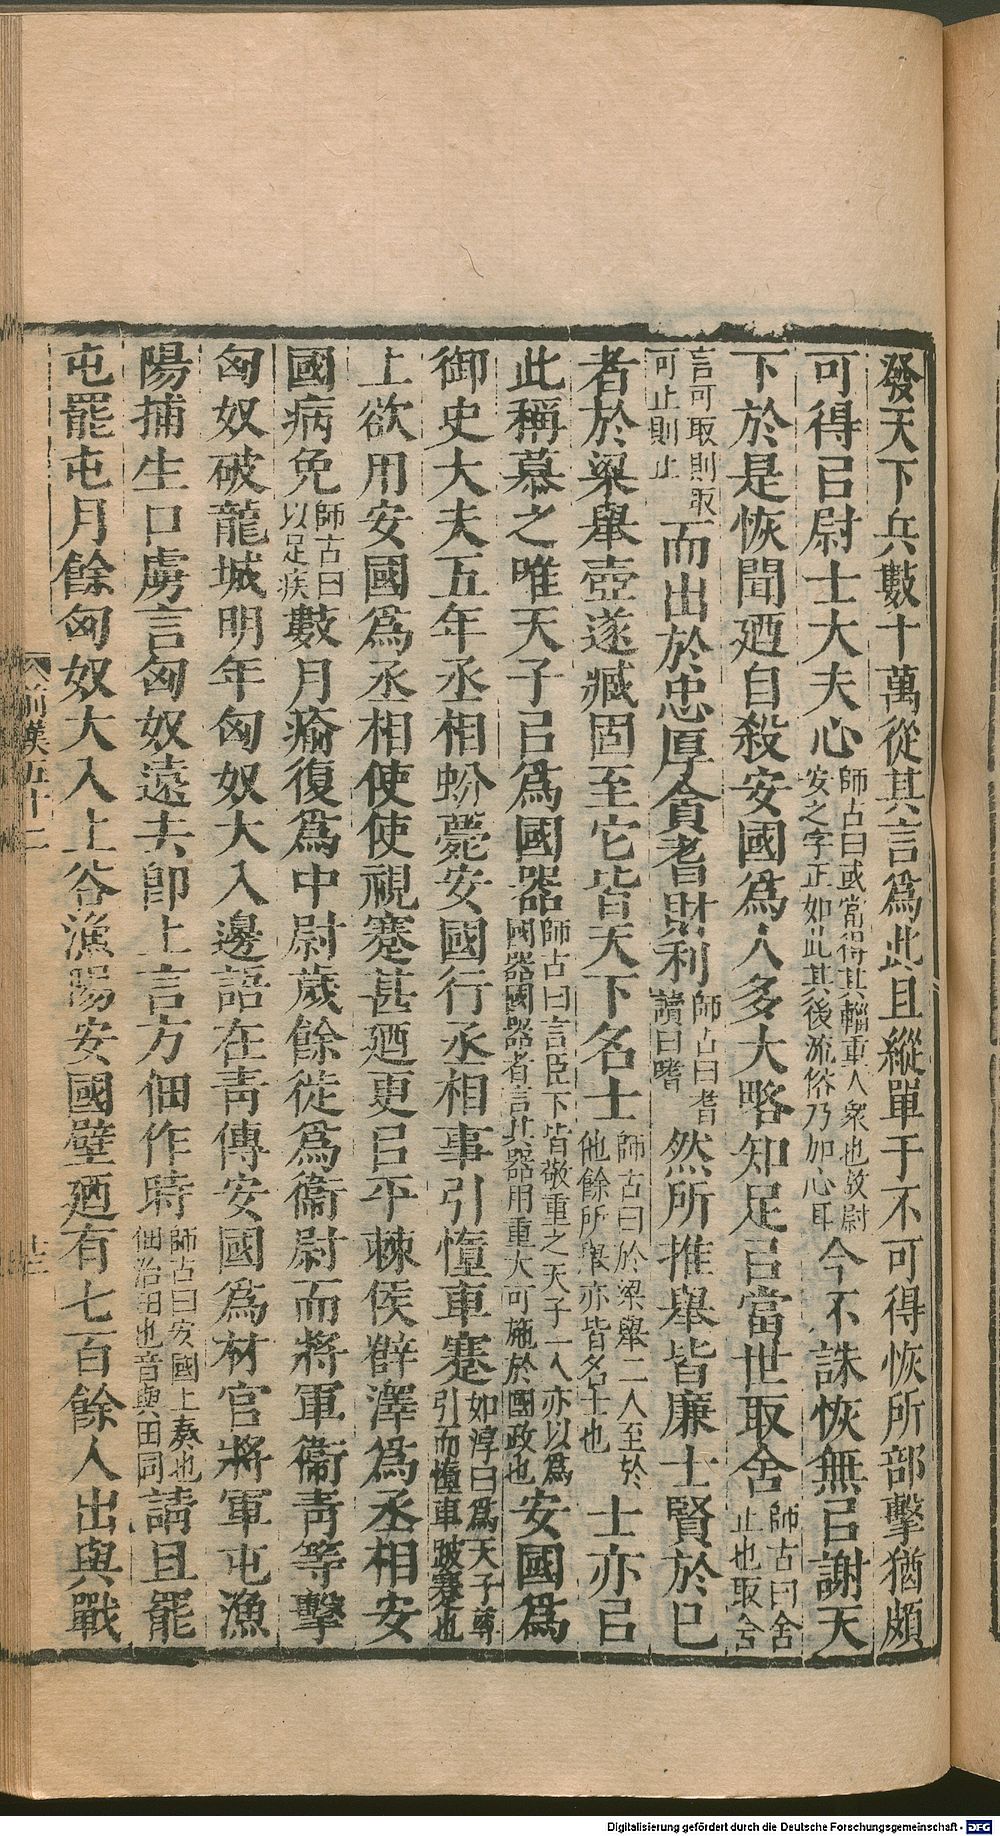 發天下兵數十萬從其言爲此且縱單于不可得恢所部擊猶頗
可得㠯尉士大夫心師古曰或當得其輜重人衆也故尉安之字正如此其後流俗乃加心耳今不誅恢無㠯謝天
下於是恢聞廼自殺安國爲人多大略知足㠯當世取舍師古曰舍止也取舍
言可取則取可止則止而出於忠厚貪耆財利師古曰耆讀曰嗜然所推舉皆廉士賢於已
者於梁舉壺遂臧固至它皆天下名士師古曰於梁舉二人至於他餘所舉亦皆名士也士亦㠯
此稱慕之唯天子㠯爲國器師古曰言臣下皆敬重之天子一人亦以爲國器國器者言其器用重大可施於國政也安國爲
御史大夫五年丞相蚡薨安國行丞相事引墮車蹇如淳曰爲天子導引而墮車跛蹇也
上欲用安國爲丞相使使視蹇甚廼更㠯平棘侯薛澤爲丞相安
國病免師古曰以足疾數月瘉復爲中尉歲餘徙爲衞尉而將軍衞青等擊
匈奴破龍城明年匈奴大入邊語在青傳安國爲材官將軍屯漁
陽捕生口虜言匈奴遠去卽上言方佃作時師古曰安國上奏也佃治田也音與田同請且罷
屯罷屯月餘匈奴大入上谷漁陽安國壁廼有七百餘人出與戰
前漢五十二
廿二
Digitalisierung gefördert durch die Deutsche Forschungsgemeinschaft - DFG